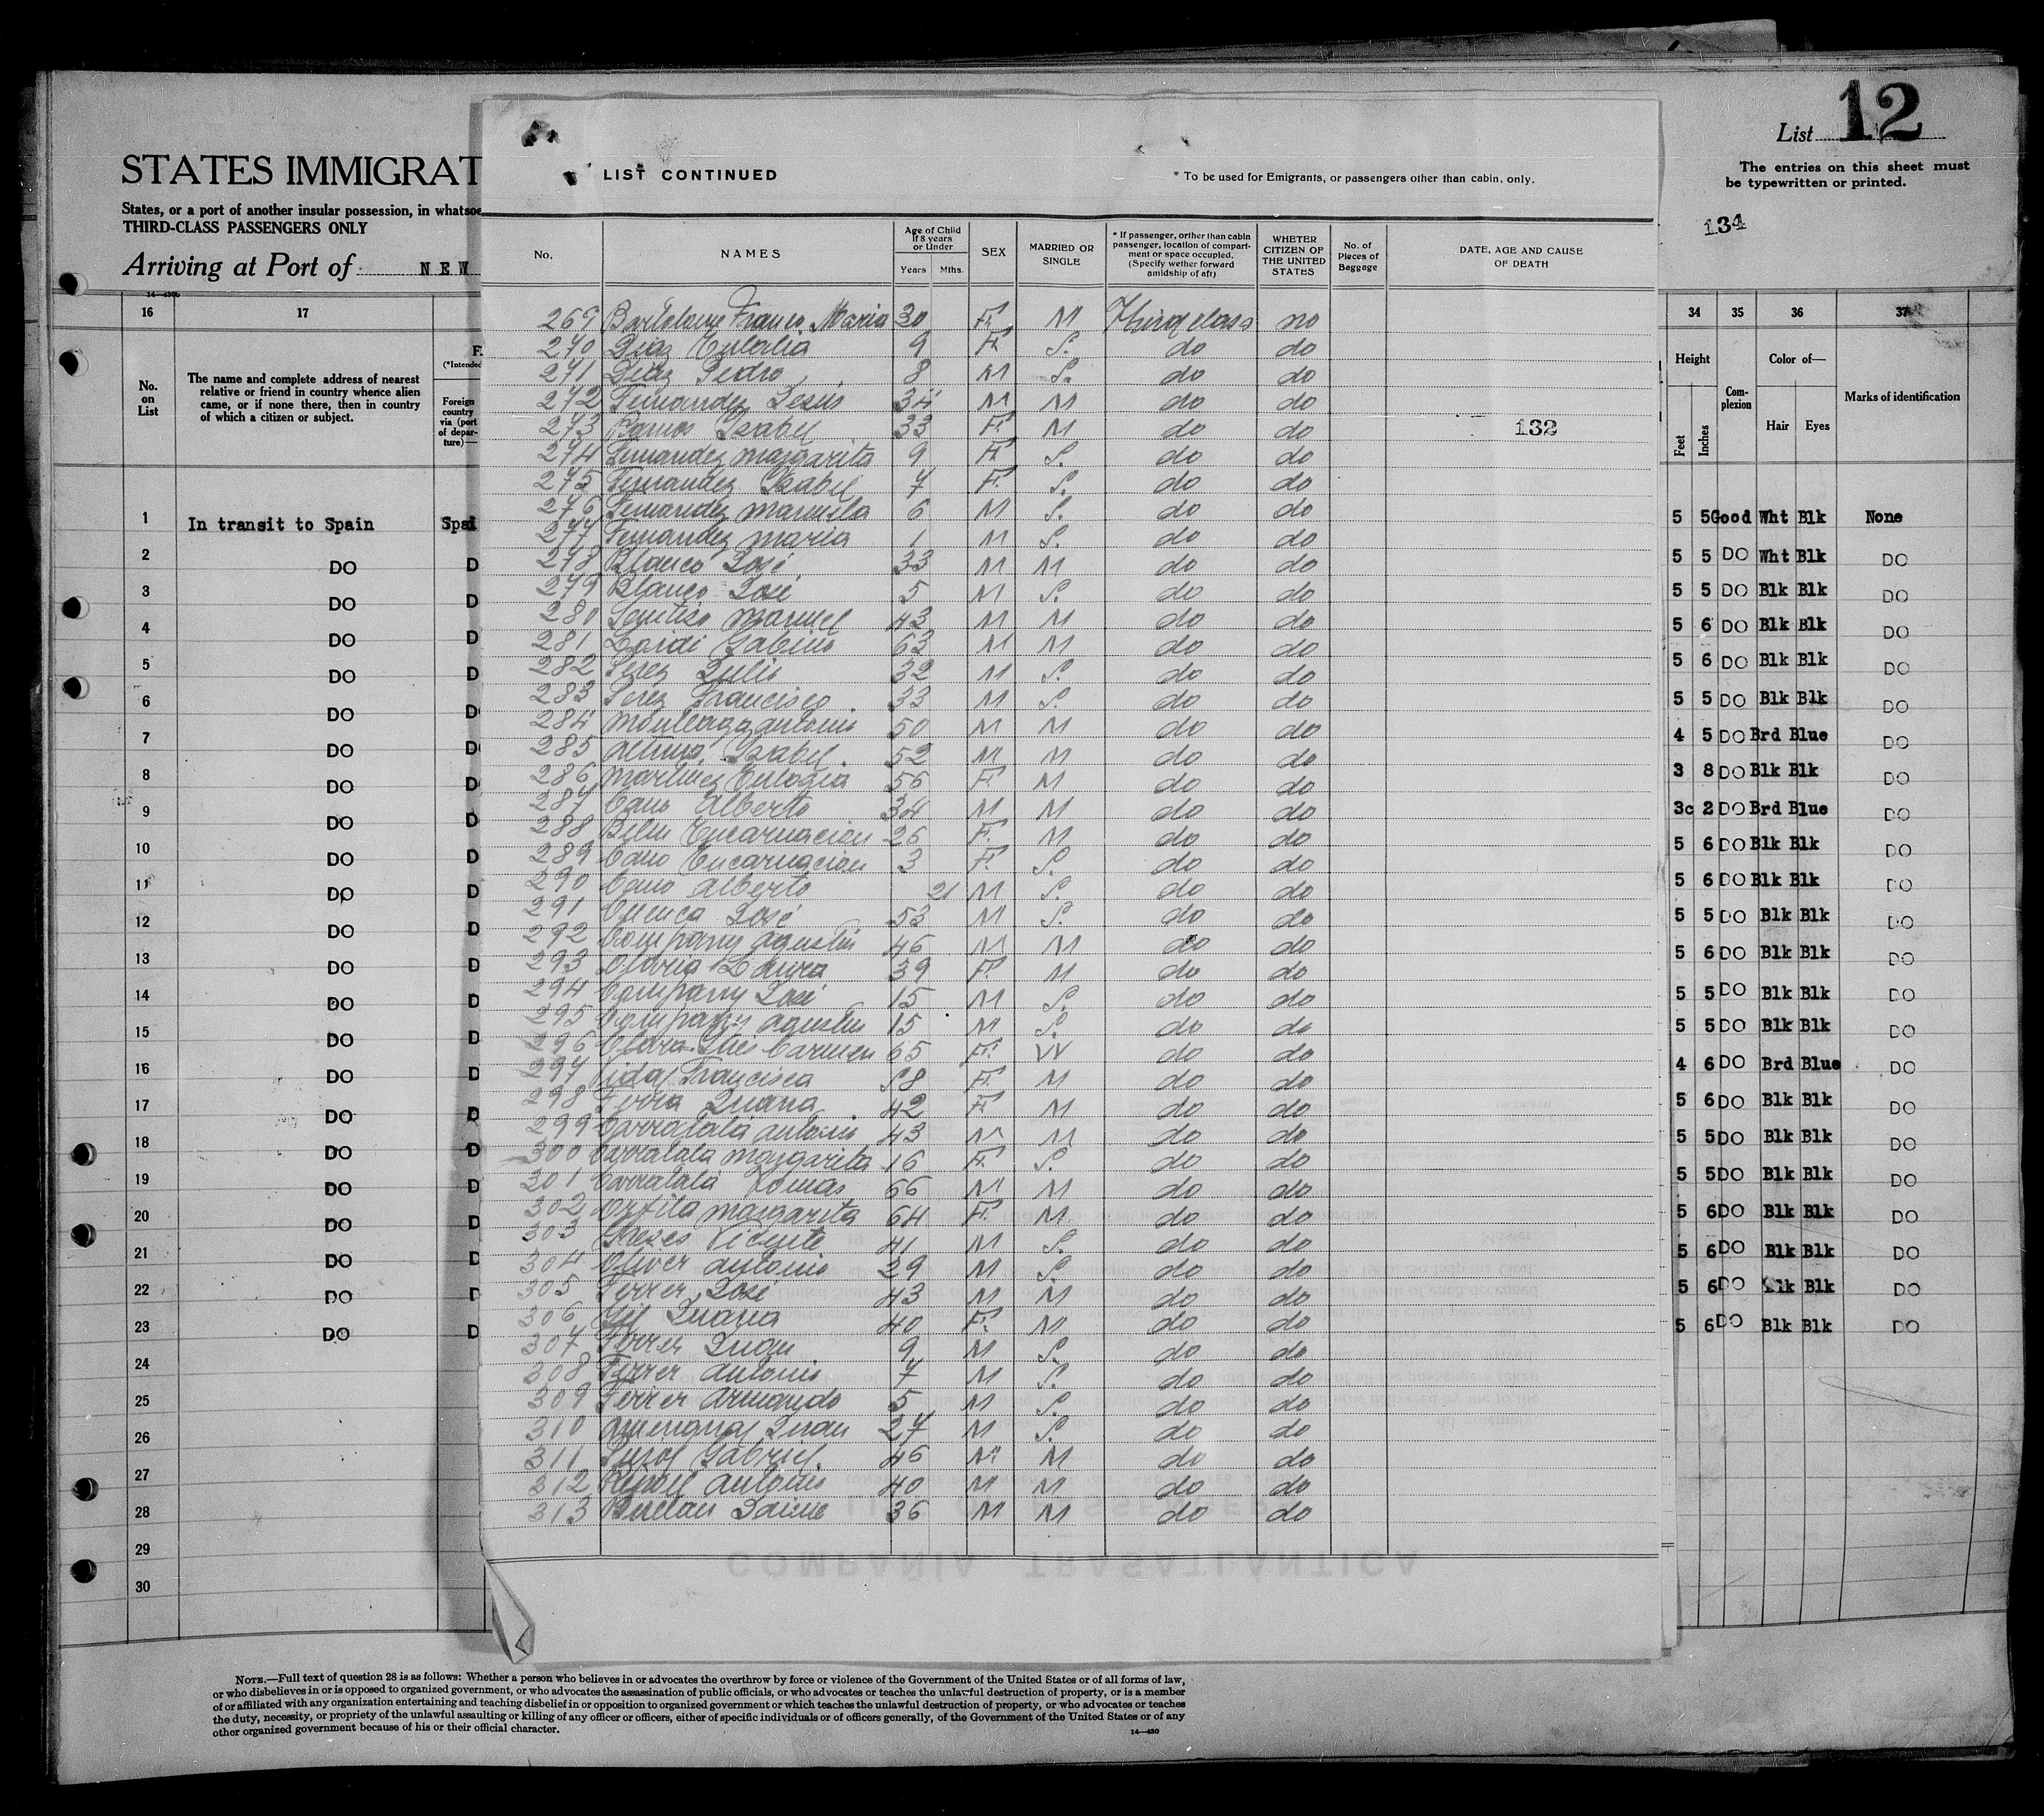 List 12
The entries on this sheet must
be typewritten or printed.
134
STATES IMMIGRAT
States, or a port of another insular possession, in whatsoe
THIRD-CLASS PASSENGERS ONLY
Arriving at Port of NEW
LIST CONTINUED
* To be used for Emigrants, or passengers other than cabin, only.
No. NAMES Age of Child if 8 years or Under Years Mths. SEX MARRIED OR SINGLE * If passenger, orther than cabin passenger, location of compartment or space occupied. (Specify wether forward amidship of aft) WHETER CITIZEN OF THE UNITED STATES No. of Pieces of Baggage DATE, AGE AND CAUSE OF DEATH
269 Bartolome Franco Maria 30 F. M Third class no
270 Diaz Eulalia 9 F. S. do do
271 Diaz Pedro 8 M S. do do
272 Fernandez Jesus 34 M M do do
273 Ramos Isabel 33 F. M do do
132
274 Fernandez Margarita 9 F. S. do do
275 Fernandez Isabel 7 F. S. do do
276 Fernandez Manuela 6 M S. do do
277 Fernandez Maria 1 M S. do do
278 Blanco José 33 M M do do
279 Blanco José 5 M S. do do
280 Manuel 43 M M do do
281 Gabino 63 M M do do
282 Perez Julio 32 M S. do do
283 Perez Francisco 33 M S. do do
284 Antonio 50 M M do do
285 Isabel 52 M M do do
286 Martinez Eulogia 56 F. M do do
287 Cano Alberto 34 M M do do
288 Encarnacion 26 F. M do do
289 Cano Encarnacion 3 F. S. do do
290 Cano Alberto 21 M S. do do
291 Cuenca José 53 M S. do do
292 Company Agustin 46 M M do do
293 Laura 39 F. M do do
294 Company José 15 M S. do do
295 Company Agustin 15 M S. do do
296 Carmen 65 F. W do do
297 Vidal Francisca 58 F. M do do
298 Ferra Juana 42 F. M do do
299 Carratala Antonio 43 M M do do
300 Carratala Margarita 16 F. S. do do
301 Carratala Tomas 66 M M do do
302 Orfila Margarita 64 F. M do do
303 Vicente 41 M S. do do
304 Oliver Antonio 29 M S. do do
305 Ferrer José 43 M M do do
306 Gil Juana 40 F. M do do
307 Ferrer Juan 9 M S. do do
308 Ferrer Antonio 7 M S. do do
309 Ferrer Armando 5 M S. do do
310 Amengual Juan 27 M S. do do
311 Pujol Gabriel 46 M M do do
312 Antonio 40 M M do do
313 Jaime 36 M M do do
14—430b
16 17
No. on List
The name and complete address of nearest relative or friend in country whence alien came, or if none there, then in country of which a citizen or subject.
(*Intended
Foreign country via (port of departure)—
34 35 36 37
Height Feet Inches Complexion Color of— Hair Eyes Marks of identification
1 In transit to Spain Spai 5 5 Good Wht Blk None
2 DO D 5 5 DO Wht Blk DO
3 DO D 5 5 DO Blk Blk DO
4 DO D 5 6 DO Blk Blk DO
5 DO D 5 6 DO Blk Blk DO
6 DO D 5 5 DO Blk Blk DO
7 DO D 4 5 DO Brd Blue DO
8 DO D 3 8 DO Blk Blk DO
9 DO D 3c 2 DO Brd Blue DO
10 DO D 5 6 DO Blk Blk DO
11 DO D 5 6 DO Blk Blk DO
12 DO D 5 5 DO Blk Blk DO
13 DO D 5 6 DO Blk Blk DO
14 DO D 5 5 DO Blk Blk DO
15 DO D 5 5 DO Blk Blk DO
16 DO D 4 6 DO Brd Blue DO
17 DO D 5 6 DO Blk Blk DO
18 DO D 5 5 DO Blk Blk DO
19 DO D 5 5 DO Blk Blk DO
20 DO D 5 6 DO Blk Blk DO
21 DO D 5 6 DO Blk Blk DO
22 DO D 5 6 DO Blk Blk DO
23 DO D 5 6 DO Blk Blk DO
24
25
26
27
28
29
30
NOTE.—Full text of question 28 is as follows: Whether a person who believes in or advocates the overthrow by force or violence of the Government of the United States or of all forms of law,
or who disbelieves in or is opposed to organized government, or who advocates the assassination of public officials, or who advocates or teaches the unlawful destruction of property, or is a member
of or affiliated with any organization entertaining and teaching disbelief in or opposition to organized government or which teaches the unlawful destruction of property, or who advocates or teaches
the duty, necessity, or propriety of the unlawful assaulting or killing of any officer or officers, either of specific individuals or of officers generally, of the Government of the United States or of any
other organized government because of his or their official character.
14—430